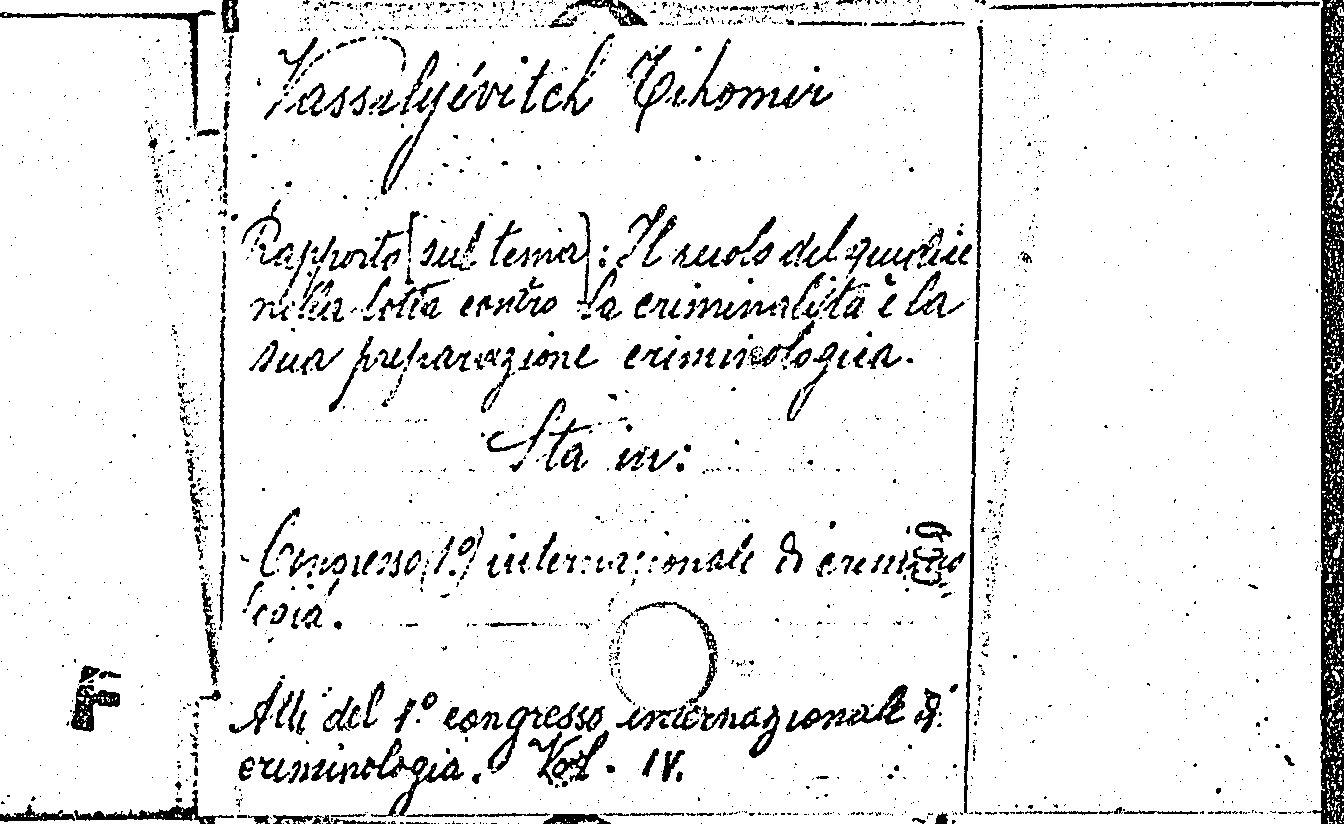 Vassalyévitch Tihomir
Rapporto [sul tema]: Il ruolo del giudice
nella lotta contro la criminalità e la
sua preparazione criminologica.
Sta in:
Congresso (1º) internazionale di crimino
logia.
Atti del 1º congresso internazionale di
criminologia. Vol. IV.
F